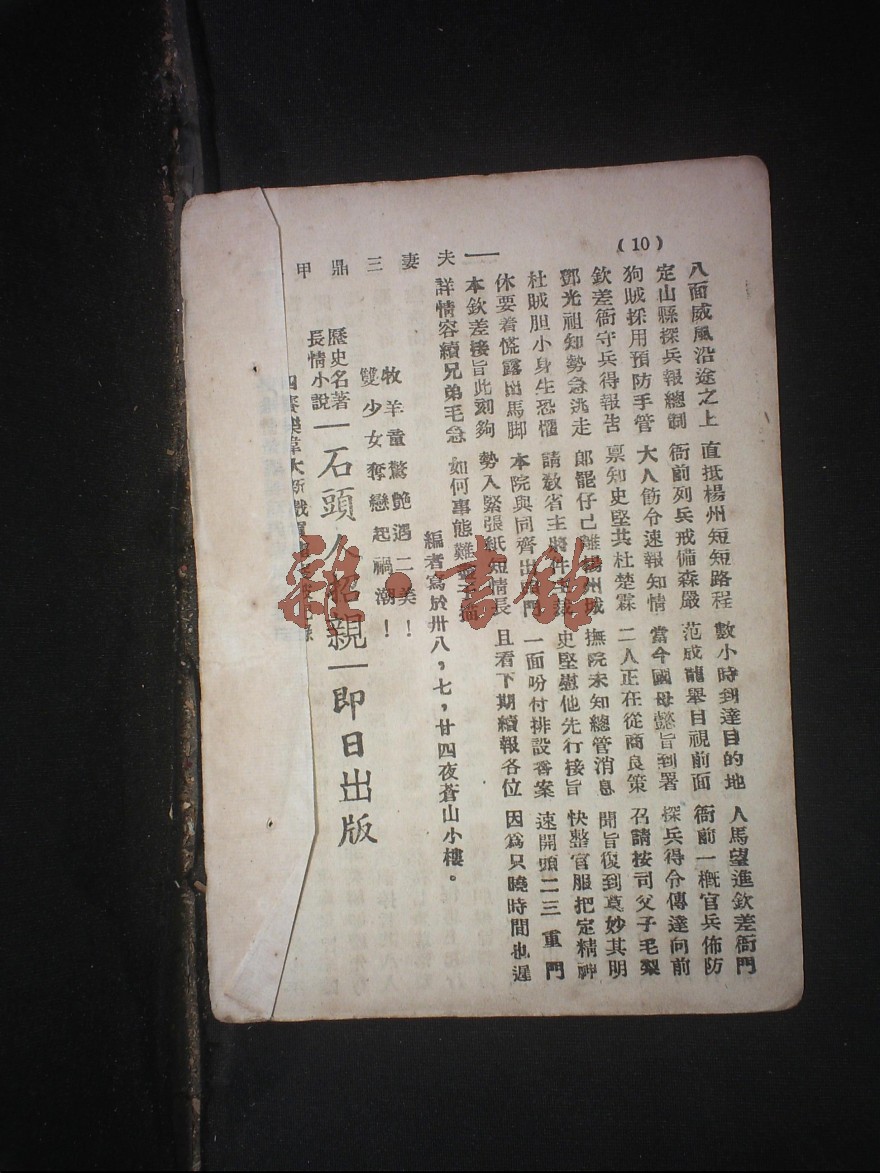 (10)
八面威風沿途之上 直抵楊州短短路程 數小時到達目的地 人馬望進欽差衙門
定山縣探兵報總制 衙前列兵戒備森嚴 范成龍舉目視前面 衙前一概官兵佈防
狗賊採用預防手管 大人飭令速報知情 當今國母懿旨到署 探兵得令傳達向前
欽差衙守兵得報告 禀知史堅共杜楚霖 二人正在從商良策 召請按司父子毛梨
鄧光祖知勢急逃走 郎罷仔己離楊州城 撫院未知總管消息 聞旨復到莫妙其明
杜賊胆小身生恐懼 請教省主將件 史堅慰他先行接旨 快整官服把定精神
休要着慌露出馬脚 本院與同齊出 門 一面吩付排設香案 速開頭二三重門
本欽差接旨此刻夠 勢入緊張紙短情長 且看下期續報各位 因爲只曉時間也遲
詳情容續兄弟毛急 如何事態難
編者寫於卅八，七，廿四夜蒼山小樓。
夫妻三鼎甲
牧羊童驚艶遇二美！
雙少女奪戀起禍潮！
歷史名著
長情小說
石頭人招親 即日出版
雜·書館